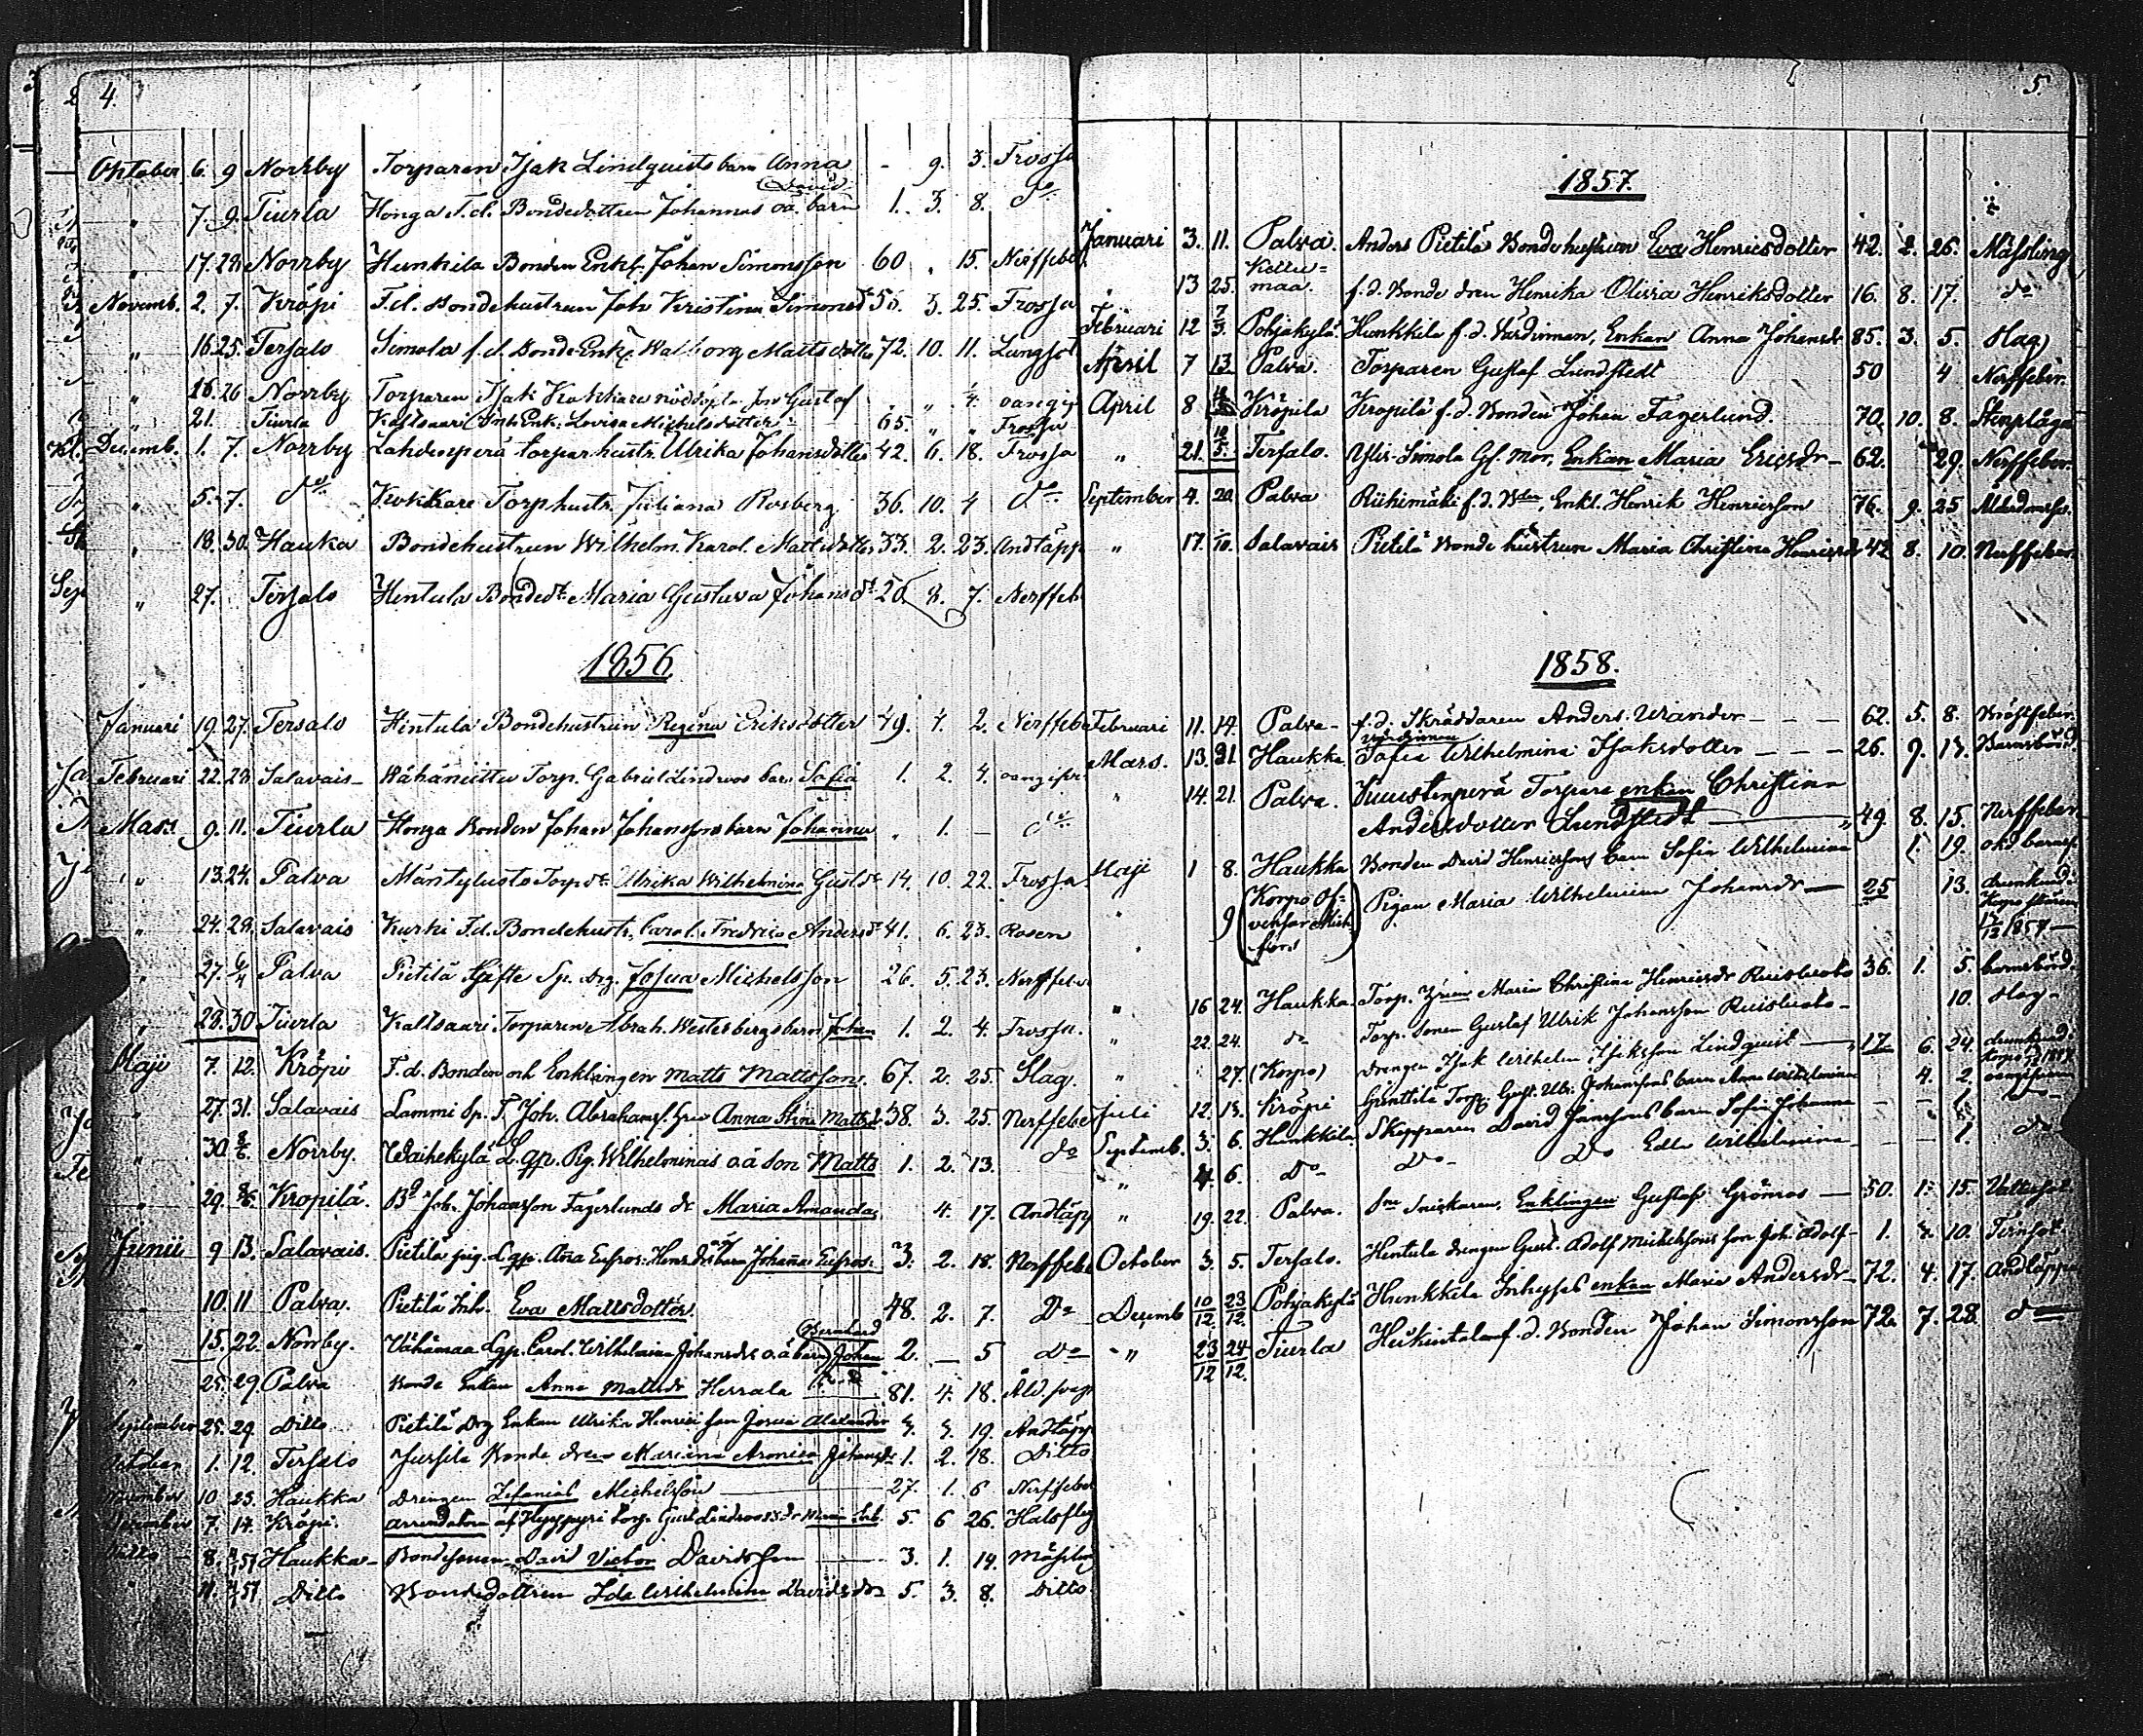 4.
Oktober 6. 9 Norrby Torparen Isak Lindquists barn Anna - 9. 3. Frossa
David
" 7. 9. Tiurla Honga F.d. Bondedottren Johannas oä. barn 1. 3. 8. Do
" 17. 28 Norrby Hunkila Bonden Enkl. Johan Simonsson 60 " 15. Nerffeb
Novemb. 2. 7. Kröpi F.d. Bondehustrun Joh Kristina Simonsd 3. 25. Frossa
" 16. 25. Tersalo Simola f.d. Bonde Enk. Walborg Mattsdotter 72. 10. 11. Lungsot
" 16. 26 Norrby Torparen Isak son Gustaf " " oangif
" 21. Tiurla Kaltsaari Inh Enk. Lovisa Michelsdotter 65. " " Frossa
Decemb. 1. 7. Norrby Lahdenperä torparhustr. Ulrika Johansdotter 42. 6. 18. Frossa
" 5. 7. Do Torphustr. Juliana Rosberg 36. 10. 4 Do
" 18. 30. Hauka Bondehustrun Wilhelm. Karol. Mattsdotter 33. 2. 23. Andtäpp
" 27. Tersalo Hintula Bondedt. Maria Gustava Johansdt 20 8. 7. Nerffeb
1856
Januari 19. 27. Tersalo Hintula Bondehustrun Regina Eriksdotter 49. 4. 2. Nerffebe
Februari 22. 28. Salavais Wähäniittu Torp. Gabriel Lindroos barn Sofia 1. 2. 4. oangifv
Mars 9. 11. Tiurla Honga Bonden Johan Johanssons barn Johanna " 1. - Do
" 13. 24. Palva Mäntyluoto Torpdt. Ulrika Wilhelmina Gustdt 14. 10. 22. Frossa
" 24. 28. Salavais Kurki F.d. Bondehustr. Carol. Fredrica Andersdt 41. 6. 23. Rosen
" 27. 6/4 Palva Pietilä Gifte Sp. Drg. Josua Michelsson 26. 5. 23. Nerffebe
" 28. 30 Tiurla Kaltsaari Torparen Abrah. Westerbergs barn Johan 1. 2. 4. Frossa.
Maji 7. 12. Kröpi F.d. Bonden och Enklingen Matts Mattsson. 67. 2. 25. Slag.
" 27. 31. Salavais Lammi Sp. T. Joh. Abrahamss. Anna Stina Mattsd 38. 3. 25. Nerffebe
" 30. 8/6 Norrby. Waihekylä Lgp. Pig. Wilhelminas o.ä son Matts 1. 2. 13. do
" 29. 8/6. Kropilä. Bd Joh. Johansson Fagerlunds dr Maria Amanda 4. 17. Andtäpp
Junii 9 13. Salavais. Pietilä pig. Lgp. Aña Eufros. Henrsdr barn Johaña Eufros. 3. 2. 18. Nerffebe
" 10. 11 Palva. Pietilä Inh. Eva Mattsdotter. 48. 2. 7. Do
Bernhard
" 15. 22. Norrby. Wähämaa Lgp. Carol. Wilhelmina Johansdrs o.ä barn Johan 2. - 5 Do
" 25. 29 Palva Bonde Enkan Anna Mattsdr Herrala 81. 4. 18. Åld. svag
September 25. 29. Ditto Pietilä Drg Enkan Ulrika Henrici son Josua Alexander 3. 3. 19. Andtäpp
October 1. 12. Tersalo Jussila Bonde dren Mariana Johansdr 1. 2. 18. Ditto
November 10 23. Haukka Drengen Zefanias Michelsson 27. 1. 6 Nerffeber
December 7. 14. Kröpi. Arrendatorn af Hyppyri torp Gust Lindroos's dr 5. 6 26. Halsfluß
Ditto 8. Haukka Bondesonen David Victor Davidsson 3. 1. 14. Mäßling
" 11. Ditto Bondedottren Ida Wilhelmina Davidsdr 5. 3. 8. Ditto.
5.
1857.
Januari 3. 11. Palva. Anders Pietilä Bondehustrun Eva Henricsdotter 42. 2. 26. Mäßling
" 13 25. Kettumaa. f.d. Bonde dren Henrika Olivia Henriksdotter 16. 8. 17. do
Februari 12 7/3. Pohjakylä Hunkkila f.d. Värdinnan, Enkan Anna Johansdr 85. 3. 5. Slag
April 7 13. Palva. Torparen Gustaf Lundstedt 50 4 Nerffeber.
April 8 Kröpila Kropilä f.d. Bonden Johan Fagerlund. 70. 10. 8. Stenplåga
" 21. 10/5. Tersalo. Ylis-Simola Gl. Mor, Enkan Maria Ericsdr 62. 29. Nerffeber.
September 4. 20. Palva Riihimäki f.d. Bden, Enkl. Henrik Henricsson 76. 9. 25 Ålderdomssv.
" 17. /10. Salavais Pietilä Bonde hustrun Maria Christina Henricsdr 42 8. 10. Nerffeber.
1858.
Februari 11. 14. Palva f.d. Skräddaren Anders Wiander 62. 5. 8. Bröstfeber.
Mars. 13. 21. Haukka Sofia Wilhelmina Isaksdotter 26. 9. 13. Barnsbörd.
" 14. 21. Palva. Torpare enkan Christina
Andersdotter Lundstedt 49. 8. 15. Nerffeber.
Maji 1 8. Haukka Bonden David Henricssons barn Sofia Wilhelmina 1. 19.
" 9 (Korpo) Pigan Maria Wilhelmina Johansdr 25 13. drunknad i Korpo
1857
" 16 24. Haukka. Torp. Maria Christina Henricsdr Ruisluoto 36. 1. 5. barnsbörd.
" 22. 24. do Torp. sonen Gustaf Ulrik Johansson Ruisluoto 10. Slag
" 27. (Korpo) Drengen Isak Wilhelm Isaksson Lindquist 17. 6. 24. drunknad i Korpo
Juli 12. 13. Kröpi Gunttila Torp. Gust. Ulr. Johanssons barn Anna Wilhelmina 4. 2.
Septemb. 3. 6. Hunkkila. Skepparen David Janssons barn Sofia Johanna - - 1. Do
" 4. 6. Do Do Do Edla Wilhelmina - - 1. do
" 19. 22. Palva. Snickaren, Enklingen Gustaf Grönroos 50. 1. 15. Vattusot
October 3. 5. Tersalo. Hintula drengen Gust. Adolf Michelssons son Joh. Adolf 1. 10.
Decemb 10/12. 23/12. Pohjakylä Hunkkila Inhyses enkan Maria Andersdr 72. 4. 17. Andtäppa
" 23/12 24/12. Tiurla Heikintalo f.d. Bonden Johan Simonsson 72. 7. 28. do